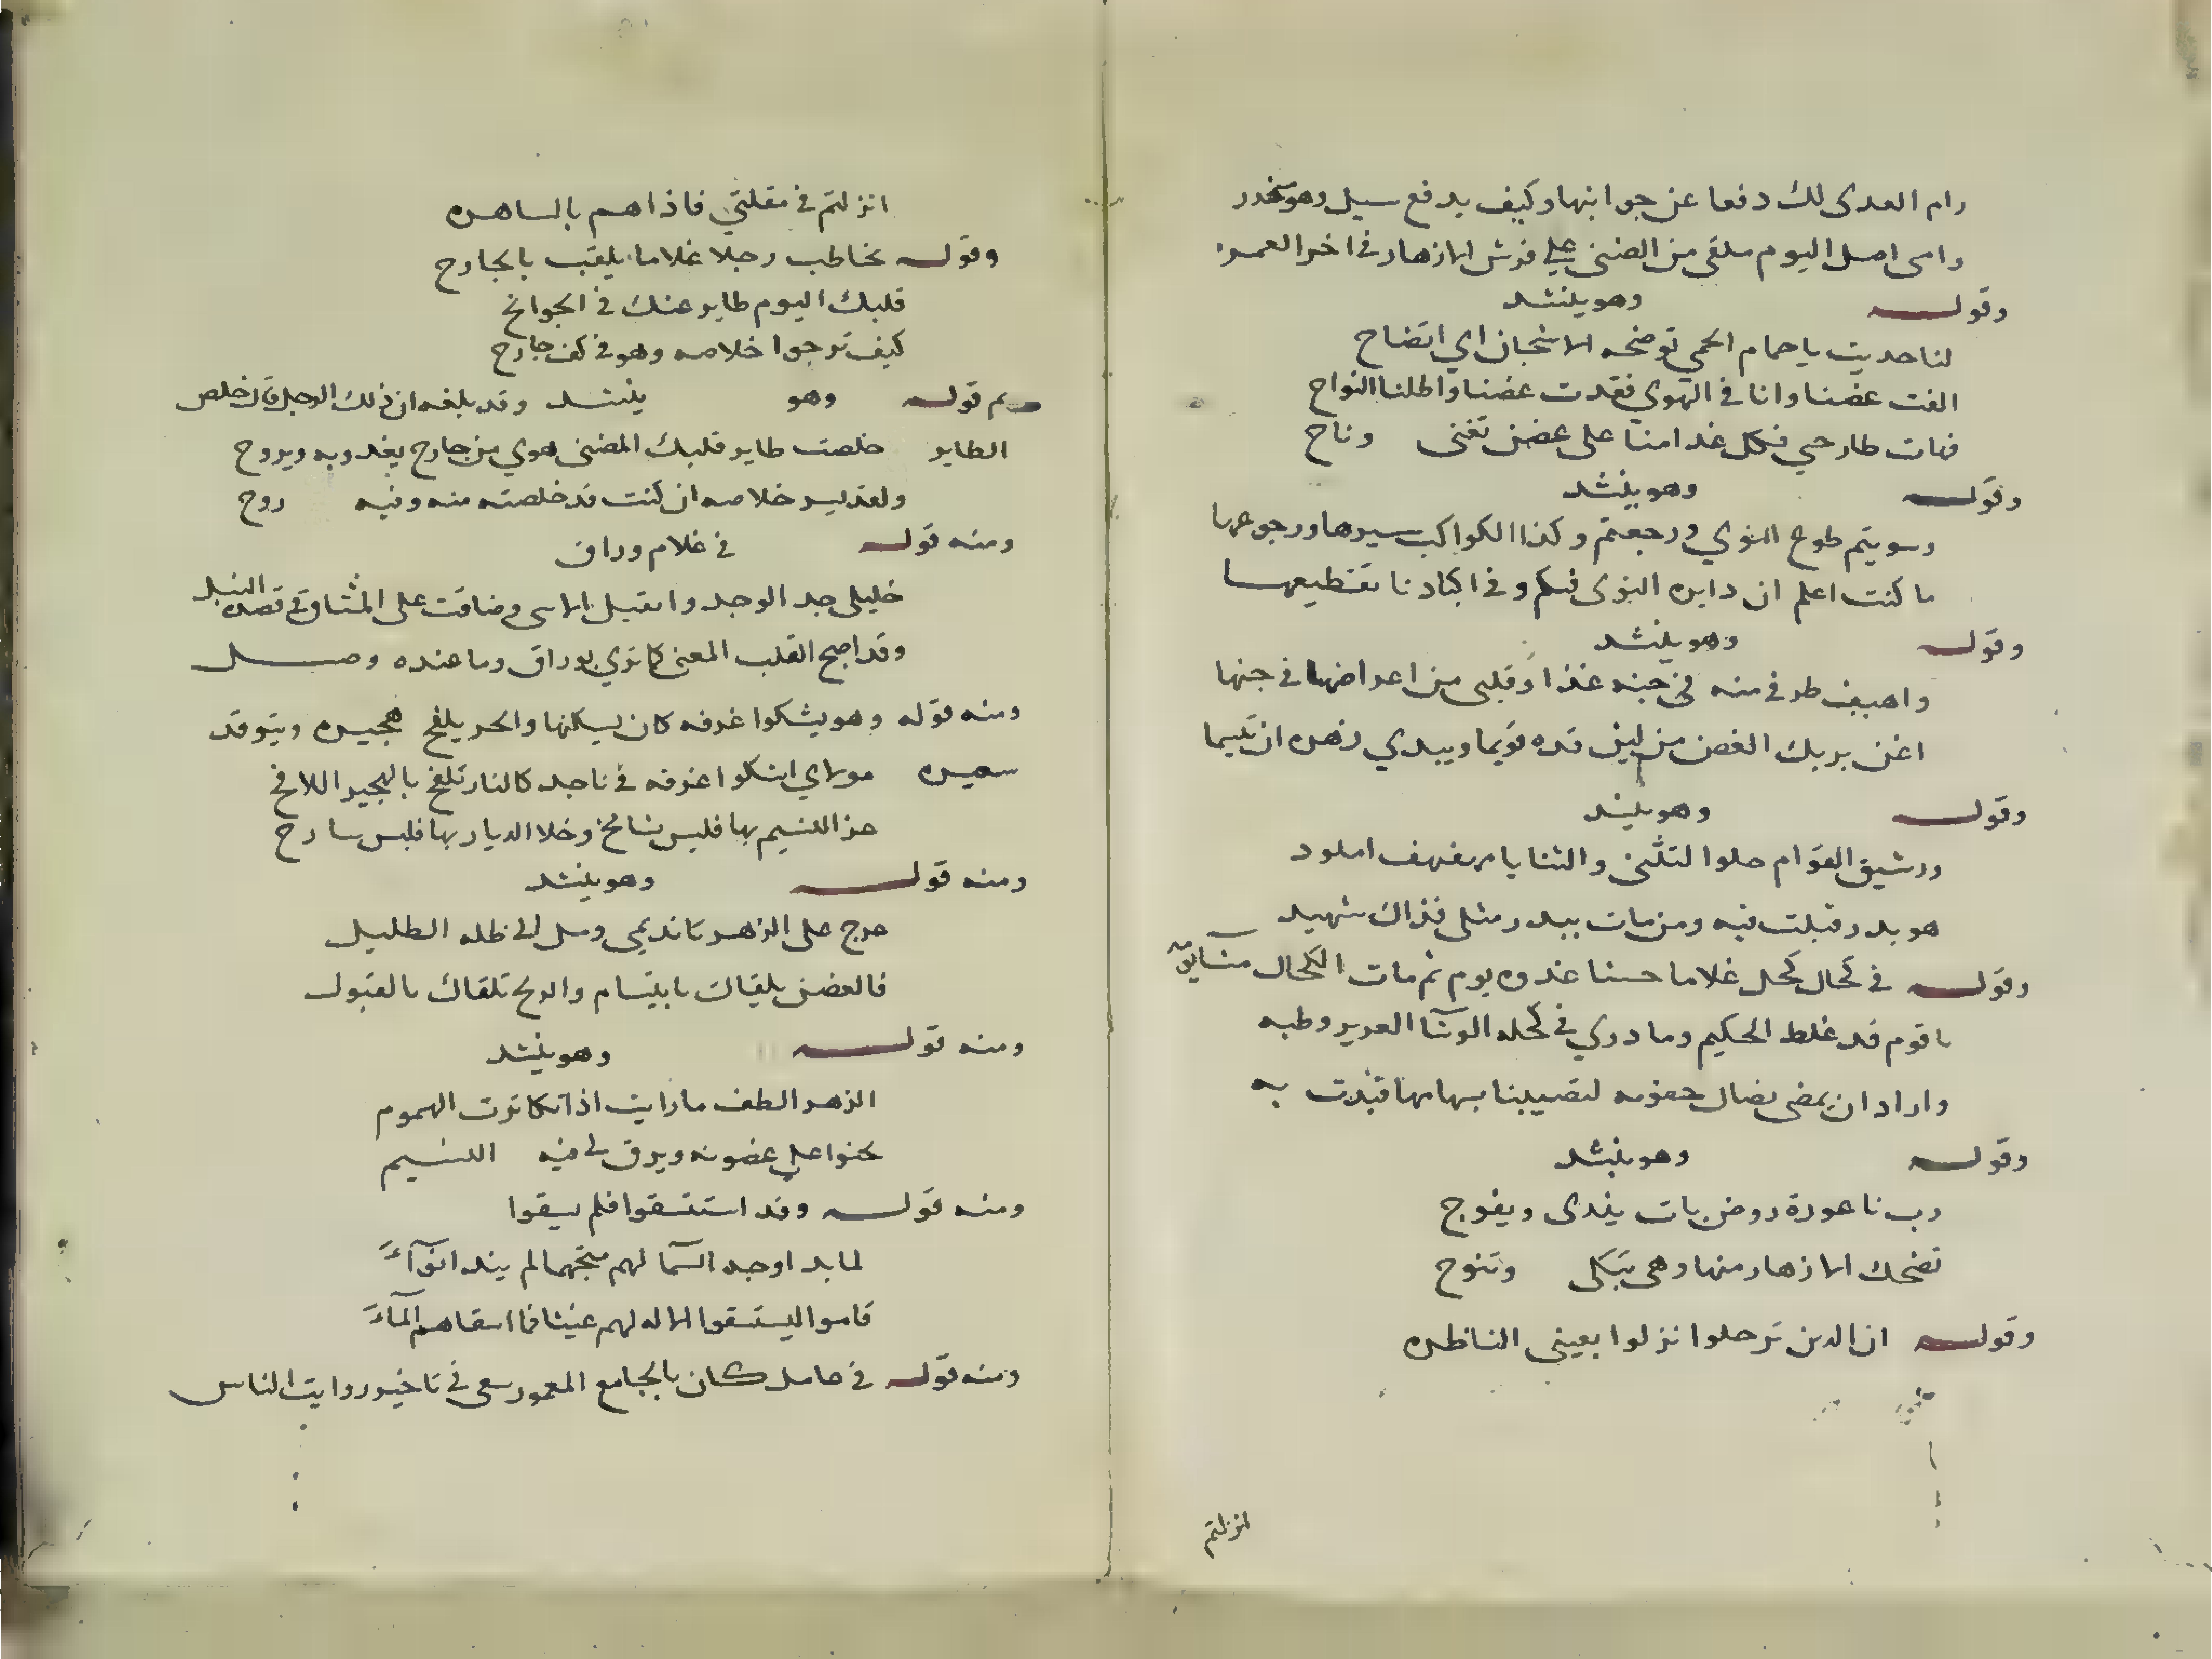 رام العدى لك دفعا عن جوانبها وكيف يدفع سيل وهو منحدر
وامى اصل اليوم ملقى من الضنى على فرش الازهار في اخر العمر
وقوله وهو ينشد
لنا حديث يا حمام الحمى توضحه الاشجان اي اتضاح
الفت غصنا وانا في الهوي فقدت غصنا واطلنا النواح
فهات طارحي فكل غدا منا على غصن تغنى وناح
وقوله وهو ينشد
وسويتم طوع النوي ورجعتم وكذا الكواكب سيرها ورجوعها
ما كنت اعلم ان دايره النوى فيكم وفي اكبادنا تقطيعها
وقوله وهو ينشد
واهيف طرفي منه في جنه غذا وقلبي من اعراضها في جنها
اغن يريك الغصن من لين قده قويما ويبدي زهره ان تبسما
وقوله وهو ينشد
ورشيق القوام حلوا لتثنى والثنايا مهفهف املود
هو بدر قبلت فيه ومن مات ببدر مثلي فذاك شهيد
وقوله في كحال كحل غلاما حسنا غدوه يوم ثم مات الكحال
يا قوم قد غلط الحكيم وما دري في كحله الرشا الغرير وطبه
واراد ان يمضي نصال جفونه لتصيبنا بسهامها فبدت به
وقوله وهو ينشد
رب ناعورة روض بات يندى ويفوح
تضحك الازهار منها وهي تبكى وتنوح
وقوله ان الدين ترحلوا نزلوا بعيني الناظره
انزلتم
انزلتم في مقلتي فاذا هم بالساهره
وقوله يخاطب رجلا غلاما يلقب بالجارح
قلبك اليوم طاير عنك في الجوانح
كيف ترجوا خلاصه وهو في كف جارح
ثم قوله وهو ينشد وقد بلغه ان ذلك الرجل قد خلص
الطاير خلصت طاير قلبك المضنى هوي من جارح يغدو به ويروح
ولقد يسر خلاصه ان كنت قد خلصته منه وفيه روح
ومنه قوله في غلام وراق
خليلي جد الوجد واتصل الاسى وضاقت على المشتاق في قصده السبل
وقد اصبح القلب المعنى كما تري بوراق وما عنده وصل
ومنه قوله وهو يشكوا غرفه كان يسكنها والحر يلفح هجيره ويتوقد
سعيره مولاي اشكوا غرفه في ناجد كالنار تلفح بالهجير اللافح
عز النسيم بها فليس بنافح وخلا الديار بها فليس سارح
ومنه قوله وهو ينشد
عرج على الزهر يا نديمي ومل الى ظله الظليل
فالغصن يلقاك بابتسام والريح تلقاك بالقبول
ومنه قوله وهو ينشد
الزهر الطف ما رايت اذا تكاثرت الهموم
تحنوا علي غصونه ويرق لي فيه النسيم
ومنه قوله وقد استسقوا فلم يسقوا
لما بدا وجه السما لهم متجهما لم يند انواء
قاموا ليستسقوا الاله لهم غيثا فما اسقاهم الماء
ومنه قوله في حامل كان بالجامع المعمور سعى في تاخير روايت الناس